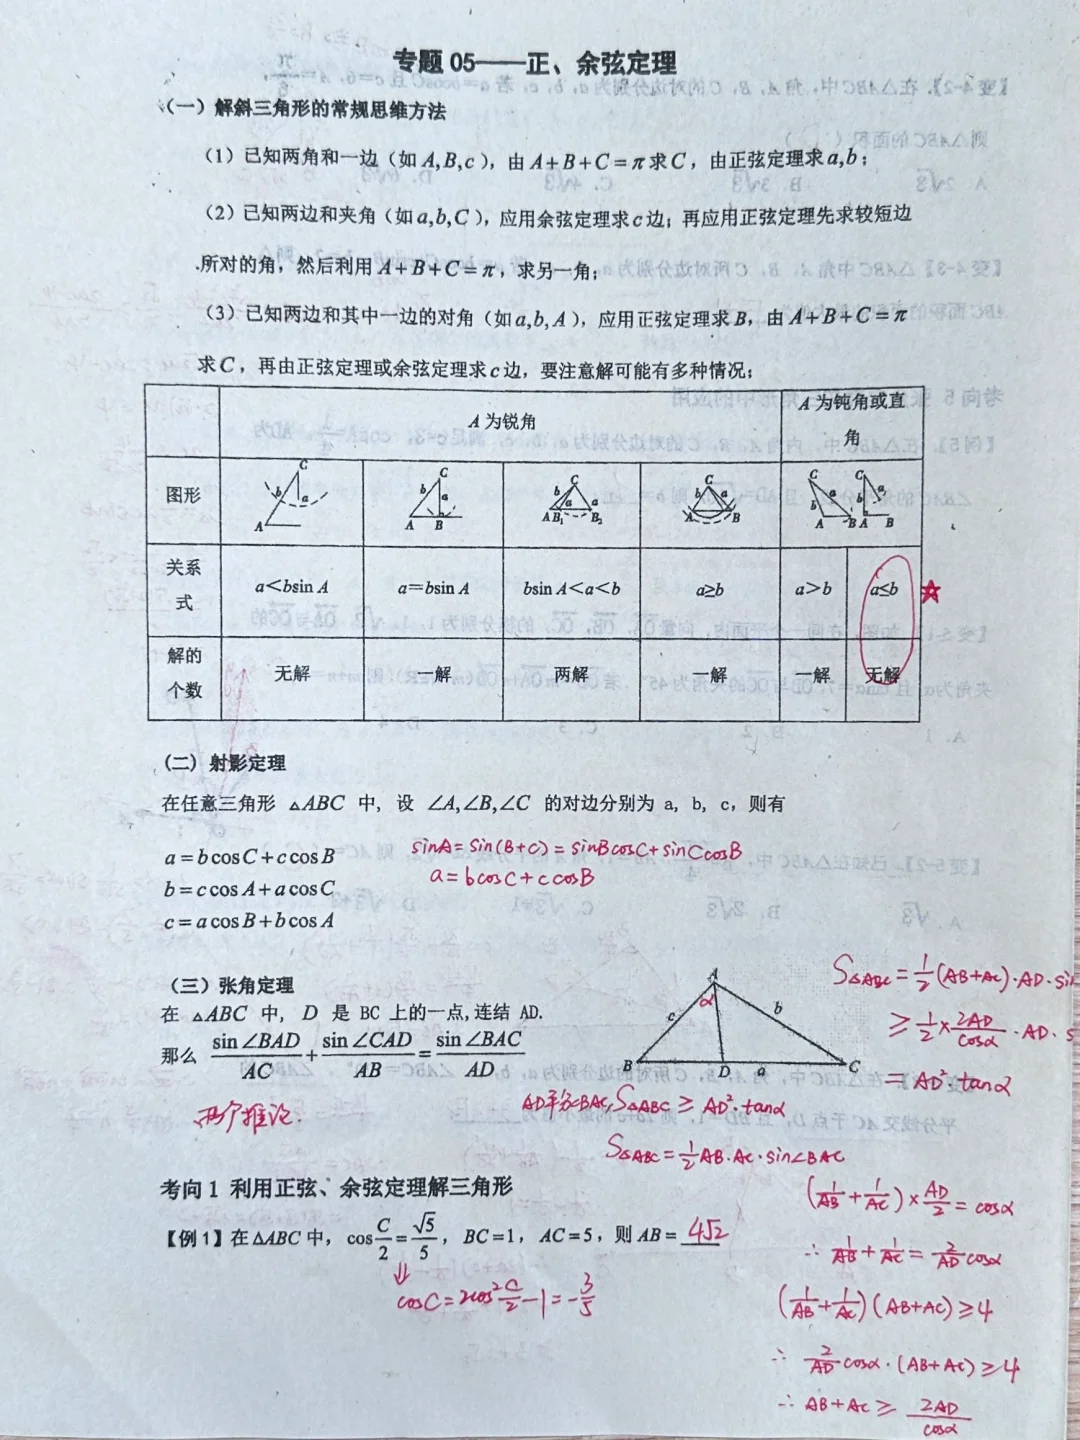 专题 05——正、余弦定理
(一)解斜三角形的常规思维方法
(1)已知两角和一边(如 A,B,c),由 A+B+C=π求C,由正弦定理求a,b;
(2)已知两边和夹角(如a,b,C),应用余弦定理求c边;再应用正弦定理先求较短边
所对的角,然后利用A+B+C=π,求另一角;
(3)已知两边和其中一边的对角(如a,b,A),应用正弦定理求B,由A+B+C=π
求C,再由正弦定理或余弦定理求c边,要注意解可能有多种情况;
A为锐角
A为钝角或直角
图形
关系式
a<bsin A
a=bsin A
bsin A<a<b
a≥b
a>b
a≤b
☆
解的个数
无解
一解
两解
一解
一解
无解
(二) 射影定理
在任意三角形 △ABC 中, 设 ∠A,∠B,∠C 的对边分别为 a, b, c, 则有
a=bcosC+ccosB
sinA=sin(B+C)=sinBcosC+sinCcosB
a=bcosC+ccosB
b=ccosA+acosC
c=acosB+bcosA
(三)张角定理
在 △ABC 中, D 是 BC 上的一点,连结 AD.
那么 sin∠BAD/AC + sin∠CAD/AB = sin∠BAC/AD
两个推论.
A
α
c
b
B
D
a
C
S△ABC=1/2(AB+AC)·AD·sin
≥1/2×2AD/cosα·AD·s
=AD²·tanα
AD平分∠BAC, S△ABC ≥ AD²·tanα
S△ABC=1/2AB·AC·sin∠BAC
(1/AB+1/AC)×AD/2=cosα
∴ 1/AB+1/AC=2/AD cosα
(1/AB+1/AC)(AB+AC)≥4
∴ 2/AD cosα·(AB+AC)≥4
∴ AB+AC≥2AD/cosα
考向1 利用正弦、余弦定理解三角形
【例1】在△ABC中, cos C/2=√5/5, BC=1, AC=5, 则 AB= 4√2
⇓
cosC=2cos²C/2-1=-3/5